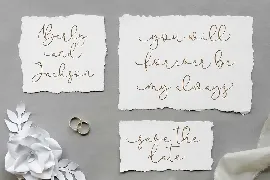 Barly
and
Jackson
you will
forever be
my always
save the
date